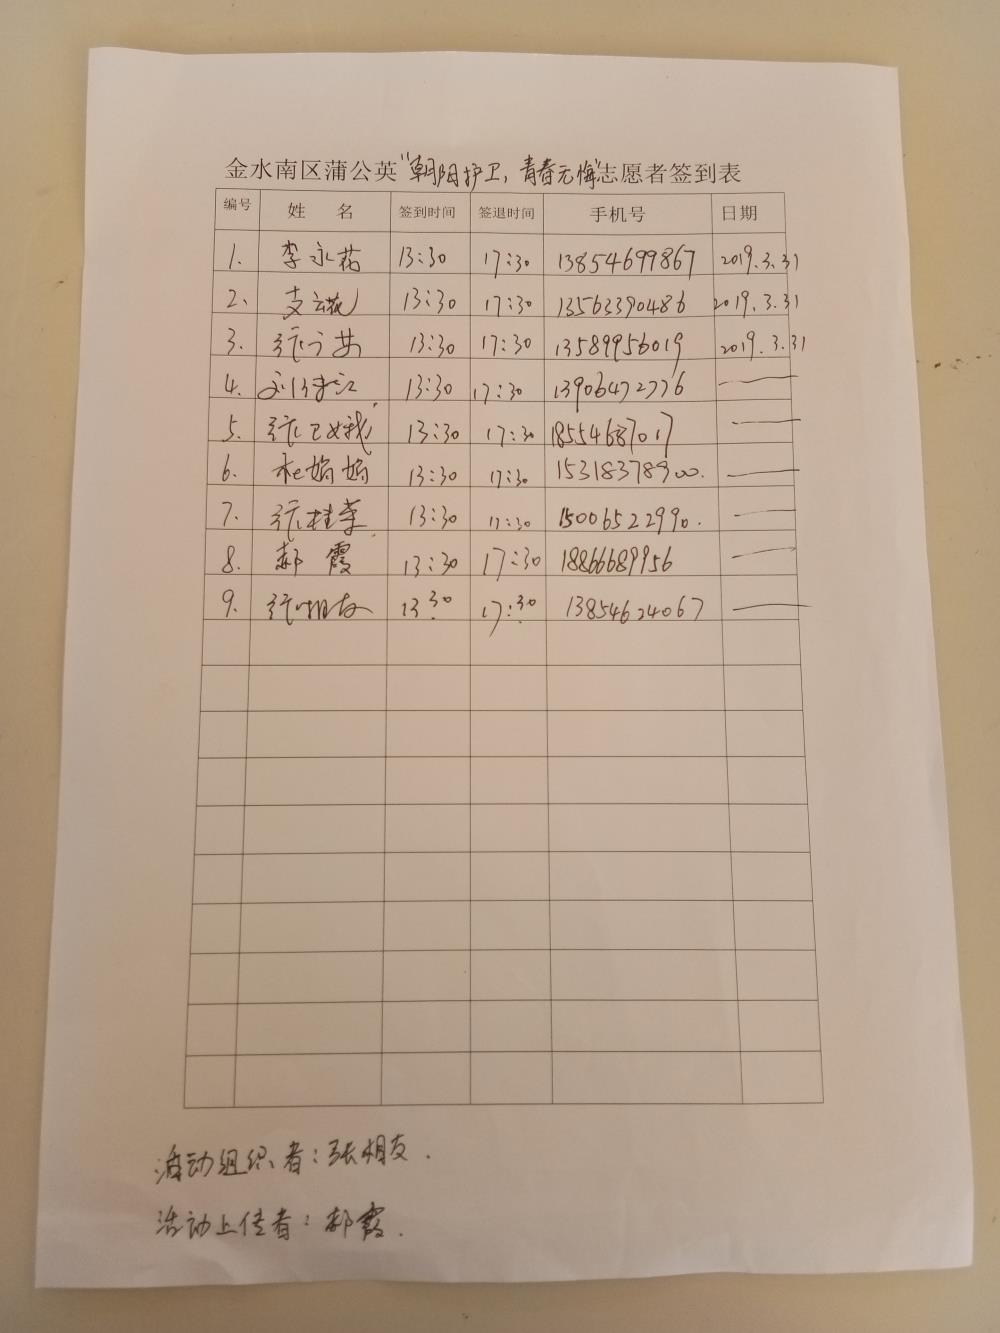 金水南区蒲公英“朝阳护卫，青春无悔”志愿者签到表
编号 姓 名 签到时间 签退时间 手机号 日期
1. 李永花 13:30 17:30 13854699867 2019.3.31
2. 支云花 13:30 17:30 13563390486 2019.3.31
3. 张 13:30 17:30 13589956019 2019.3.31
4. 13:30 17:30 13906472776 —
5. 张卫娥 13:30 17:30 18554687017 —
6. 杜娟娟 13:30 17:30 15318378900. —
7. 张桂荣 13:30 17:30 15006522990. —
8. 郝 霞 13:30 17:30 18866689956 —
9. 张相友 13:30 17:30 13854624067 —
活动组织者：张相友.
活动上传者：郝霞.